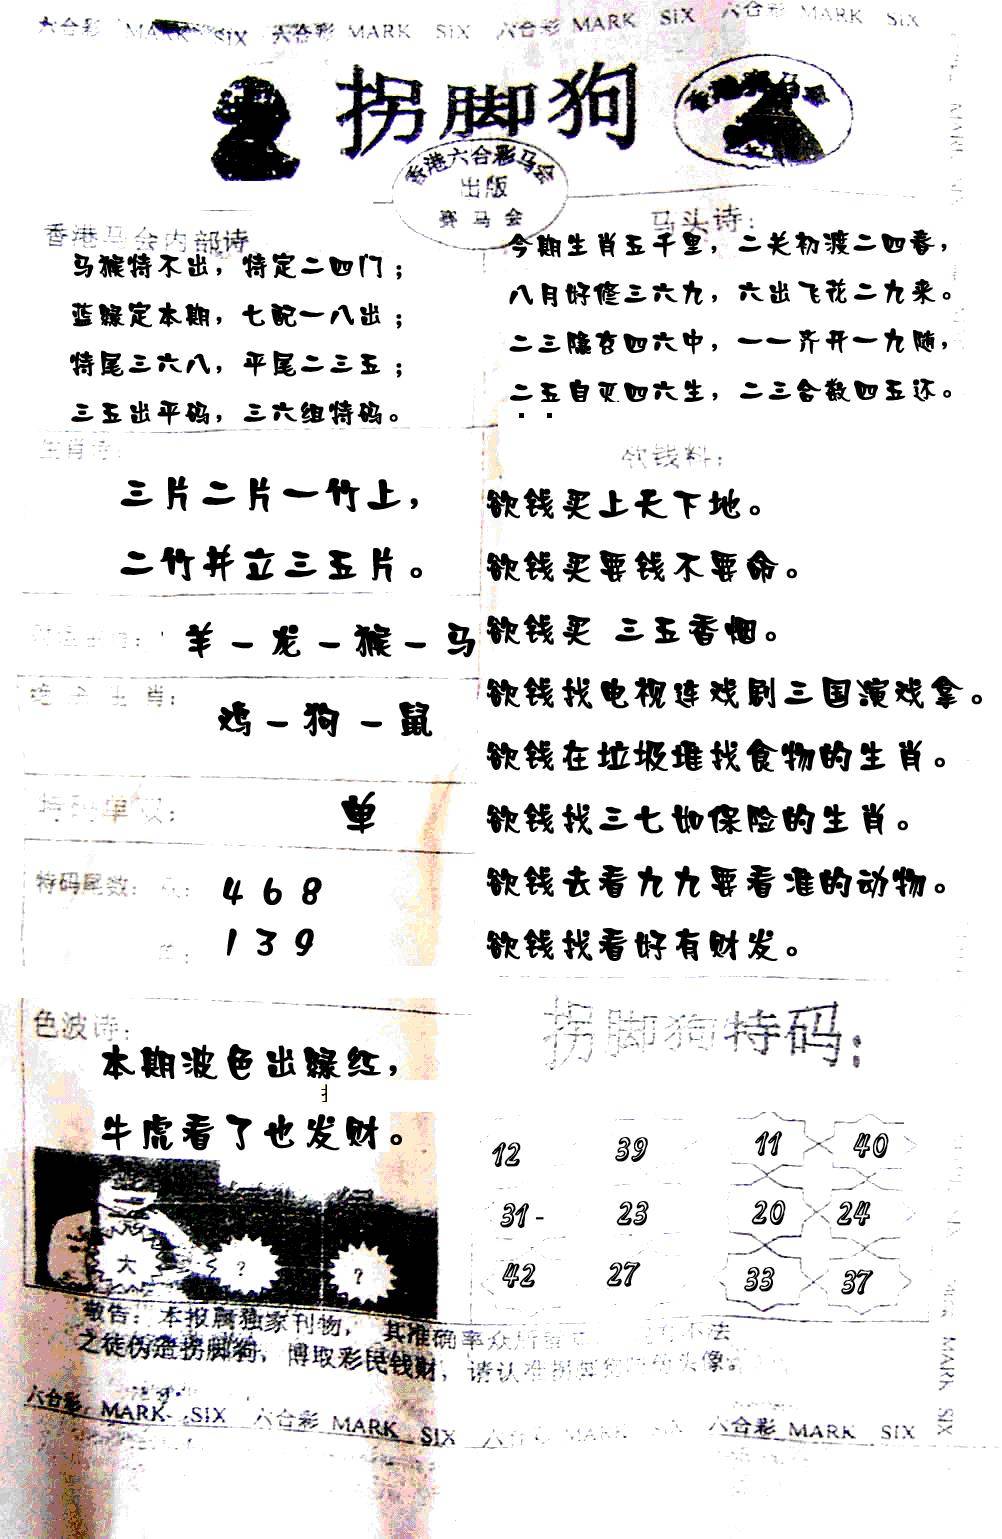 六合彩 MARK SIX 六合彩 MARK SIX 六合彩 MARK SIX 六合彩 MARK SIX
拐脚狗
香港六合彩马会
出版
赛马会
香港马会内部诗
马猴特不出，特定二四门；
蓝绿定本期，七配一八出；
特尾三六八，平尾二三五；
三五出平码，三六组特码。
马头诗：
今期生肖五千里，二关初渡二四春，
八月好修三六九，六出飞花二九来。
二三隐在四六中，一一齐开一九随，
二五自灭四六生，二三合数四五还。
生肖诗：
三片二片一竹上，
二竹并立三五片。
羊－龙－猴－马
生肖：
鸡－狗－鼠
特码单双：
单
特码尾数：
4 6 8
1 3 9
欲钱料：
欲钱买上天下地。
欲钱买要钱不要命。
欲钱买 三五香烟。
欲钱找电视连戏剧三国演戏拿。
欲钱在垃圾堆找食物的生肖。
欲钱找三七如保险的生肖。
欲钱去看九九要看准的动物。
欲钱找看好有财发。
色波诗：
本期波色出绿红，
牛虎看了也发财。
大 ? ?
拐脚狗特码：
12 39 11 40
31- 23 20 24
42 27 33 37
敬告：本报属独家刊物，其准确率众所 不法
之徒伪造拐脚狗，博取彩民钱财，请认准拐脚狗 头像。
六合彩 MARK SIX 六合彩 MARK SIX 六合彩 MARK SIX 六合彩 MARK SIX
MARK SIX